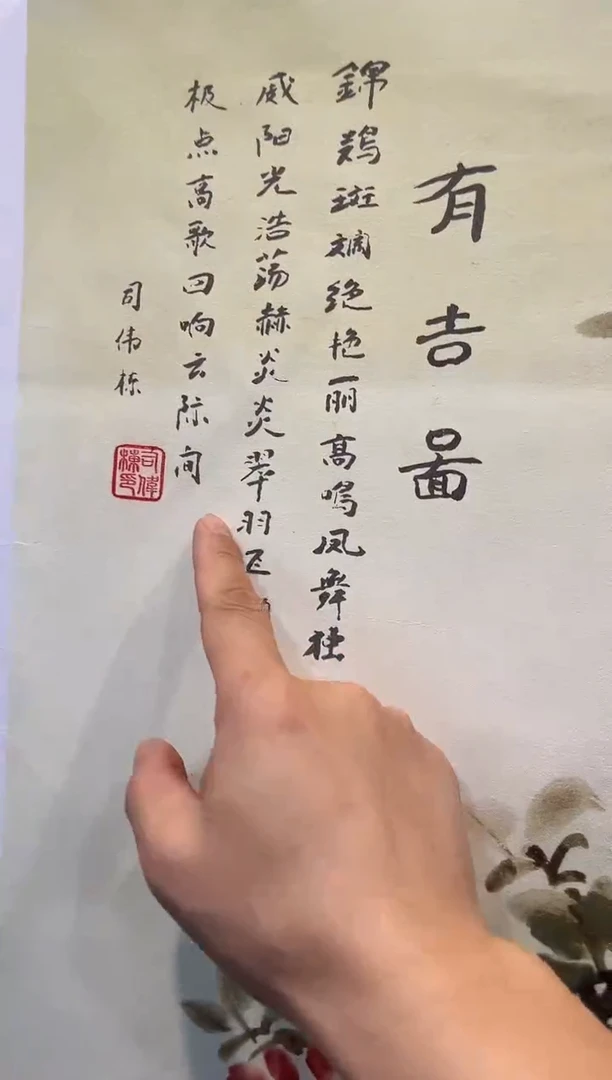 有吉啚
錦鷄斑斓绝艳丽高鳴凤舞
威阳光浩荡赫炎炎翠羽飞
极点高歌回响云际间
司伟栋
司偉棟印